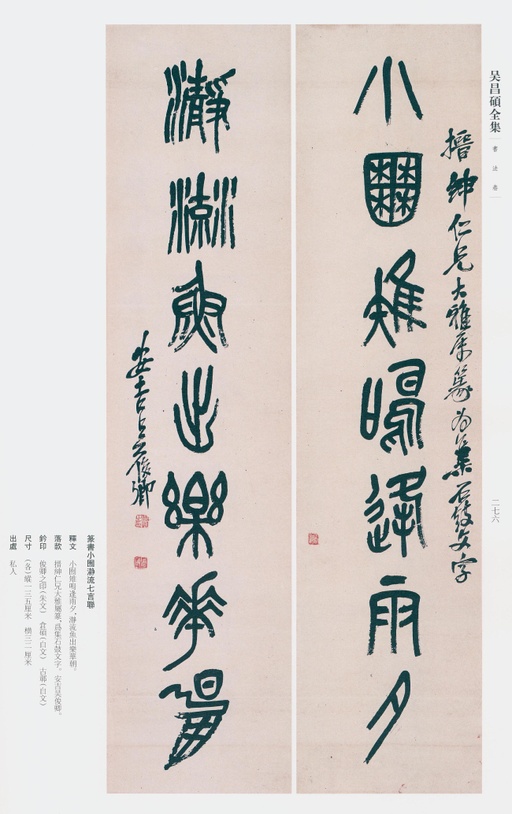 吴昌碩全集
書法卷
二七六
搢紳仁兄大雅屬篆為集石鼓文字
小囿雉鳴逢雨夕
瀞流魚出樂華朝
安吉吳俊卿
篆書小囿瀞流七言聯
釋文 小囿雉鳴逢雨夕,瀞流魚出樂華朝。
落款 搢紳仁兄大雅屬篆,爲集石鼓文字,安吉吳俊卿。
鈐印 俊卿之印(朱文) 倉碩(白文)
尺寸 (各)縱一三五厘米 橫三二厘米
出處 私人